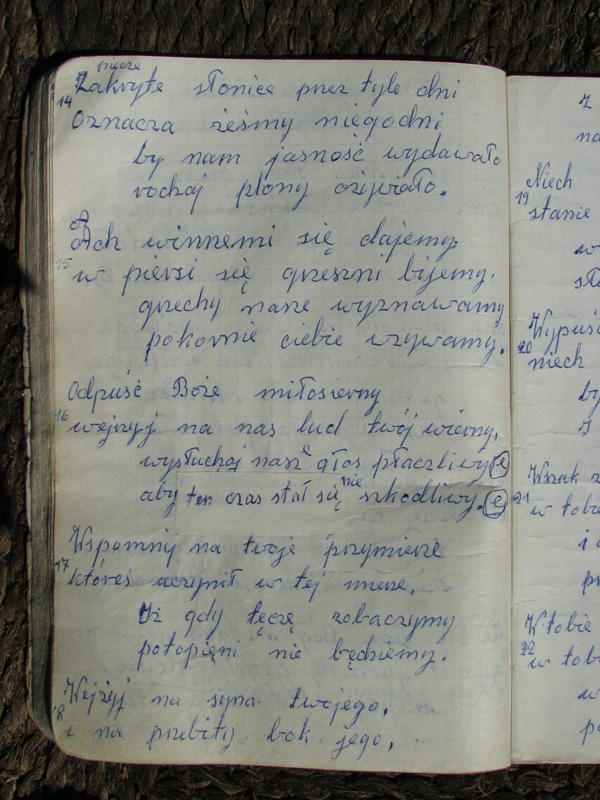 niecze
Zakryte słońce przez tyle dni
14
Oznacza żeśmy niegodni
by nam jasność wydawało
rochaj plony ożywało.
Ach winnemi się dajemy
15
w piersi się grzeszni bijemy.
grzechy nasze wyznawamy
pokornie ciebie wzywamy.
Odpuść Boże miłosierny
16
wejzyj na nas lud twój wierny,
wysłuchaj nasz głos płaczliwy e
aby ten czas stał się nie szkodliwy. e
Wspomnij na twoje przymierze
17
któreś uczynił w tej mierze,
Iż gdy tęczę zobaczymy
potopięni nie będziemy.
Wejżyj na syna twojego,
18
i na przebity bok jego,
z
na
Niech
19
stanie
w
sło
Wypuść
20
niech
by
I
Wszak
21
w tobie
i
pr
W tobie
22
w tob
w
po